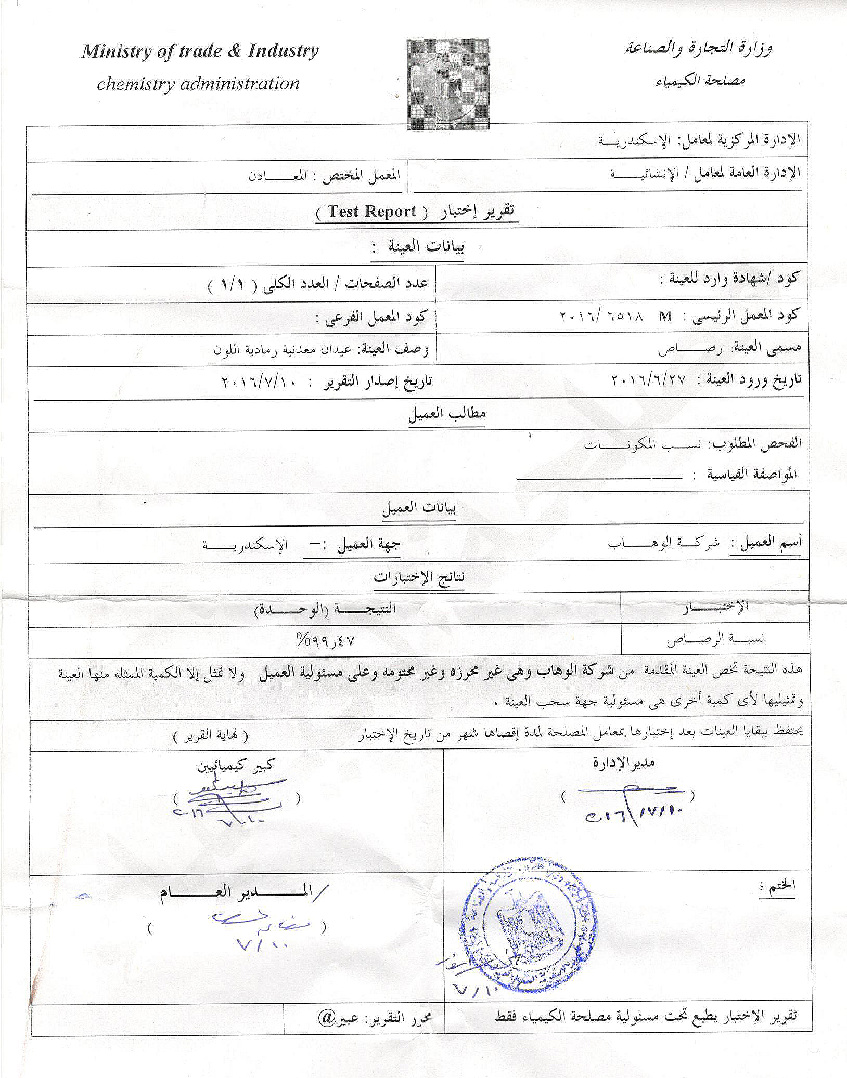 Ministry of trade & Industry
chemistry administration
وزارة التجارة والصناعة
مصلحة الكيمياء
الإدارة المركزية لمعامل: الإسكندريـــة
الإدارة العامة لمعامل / الإنشائيـــة
المعمل المختص : المعـــادن
تقرير إختبار ( Test Report )
بيانات العينة :
كود /شهادة وارد للعينة :
عدد الصفحات / العدد الكلى ( ١/١ )
كود المعمل الرئيسى : M ٦٥١٨ /٢٠١٦
كود المعمل الفرعى :
مسمى العينة: رصـــاص
وصف العينة: عيدان معدنية رمادية اللون
تاريخ ورود العينة : ٢٠١٦/٦/٢٧
تاريخ إصدار التقرير : ٢٠١٦/٧/١٠
مطالب العميل
الفحص المطلوب: نسـب المكونـــات
المواصفة القياسية :
بيانات العميل
أسم العميل : شركـة الوهـــاب
جهة العميل :– الإسكندريـــة
نتائج الإختبارات
الإختبـــار
النتيجـــة (الوحـدة)
نسبـة الرصـــاص
٩٩,٤٧%
هذه النتيجة تخص العينة المقدمة من شركة الوهاب وهى غير محرزه وغير مختومه وعلى مسئولية العميل ولا تمثل إلا الكمية الممثله منها العينة
وتمثيلها لأى كمية أخرى هى مسئولية جهة سحب العينة .
يحتفظ ببقايا العينات بعد إختبارها بمعامل المصلحة لمدة إقصاها شهر من تاريخ الإختبار ( نهاية التقرير )
مدير الإدارة
كبير كيميائيين
٢٠١٦/٧/١٠
٢٠١٦
٧/١٠
الختم :
/المـــدير العـــام
٧/١٠
٧/١٠
تقرير الاختبار يطبع تحت مسئولية مصلحة الكيمياء فقط
محرر التقرير: عبير@